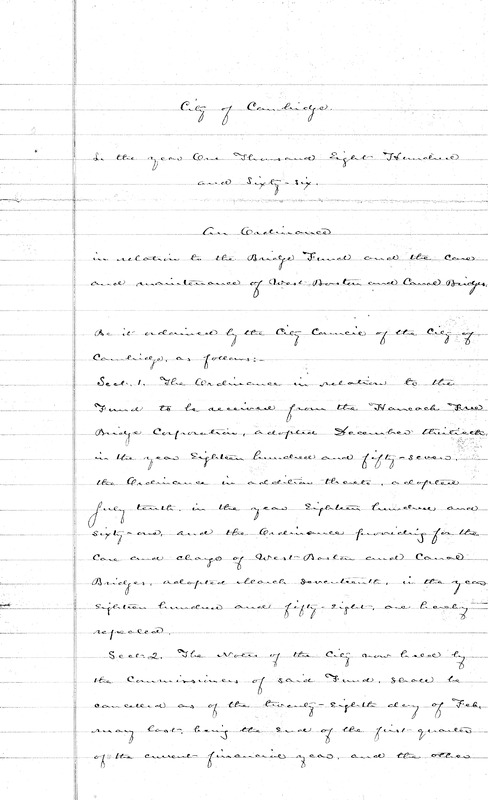 City of Cambridge.
In the year One Thousand Eight Hundred
and Sixty-six.
An Ordinance
in relation to the Bridge Fund and the care
and maintenance of West Boston and Canal Bridges.
Be it ordained by the City Council of the City of
Cambridge, as follows:-
Sect. 1. The Ordinance in relation to the
Fund to be received from the Hancock Free
Bridge Corporation, adopted December thirtieth
in the year Eighteen hundred and fifty-seven,
the Ordinance in addition thereto, adopted
July tenth, in the year Eighteen hundred and
sixty-one, and the Ordinance providing for the
Care and charge of West Boston and Canal
Bridges, adopted March seventeenth, in the year
Eighteen hundred and fifty-eight, are hereby
repealed.
Sect. 2. The Notes of the City now held by
the Commissioners of said Fund, shall be
cancelled as of the twenty-eighth day of Feb,
ruary last, being the end of the first quarter
of the current financial year, and the other